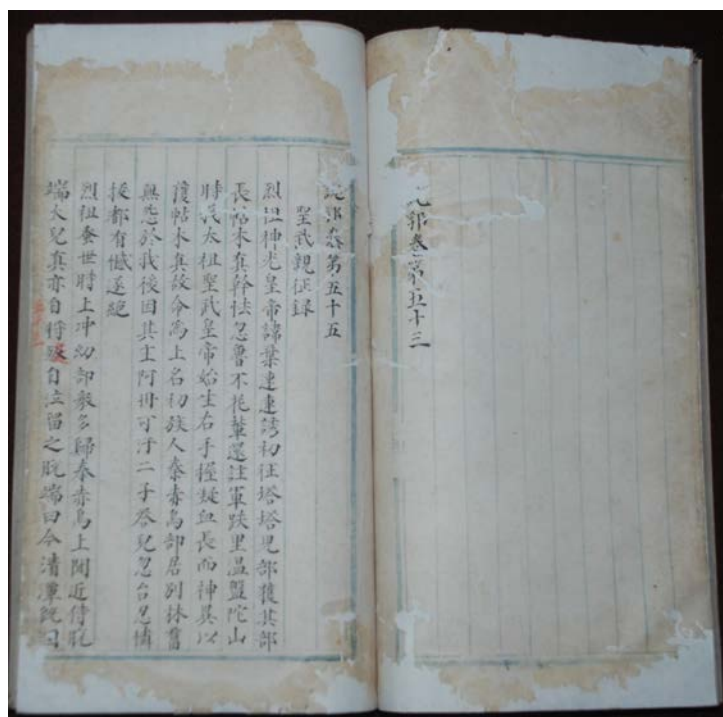 郛卷第五十三
郛卷第五十五
聖武親征録
烈祖神元皇帝諱葉速速誘初征塔塔児部獲其部
長帖木真斡怯忽魯不花輩還註軍跌里温盤陀山
時我太祖聖武皇帝始生右手握凝血長而神異以
獲帖木真故命爲上名初族人泰赤烏部居别林舊
無怨於我後因其主阿丹可汗二子荅兒忽台忽憐
援都有憾遂絶
烈祖蚤世時上冲幼部衆多歸泰赤烏上聞近侍脱
端火兒真亦自將叛自泣留之脱端曰今清潭既